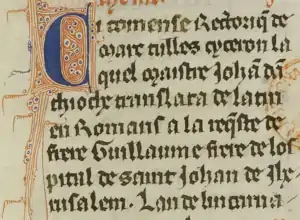 Ci comense Rectoriq̄ de
Marc tulles cyceron la
quel maistre Johā dā
thioche translata de latin
en Romans a la reqͥste de
frere Guillaume frere de los
pital de saint Johan de Jhe
rusalem. Lan de lincarna